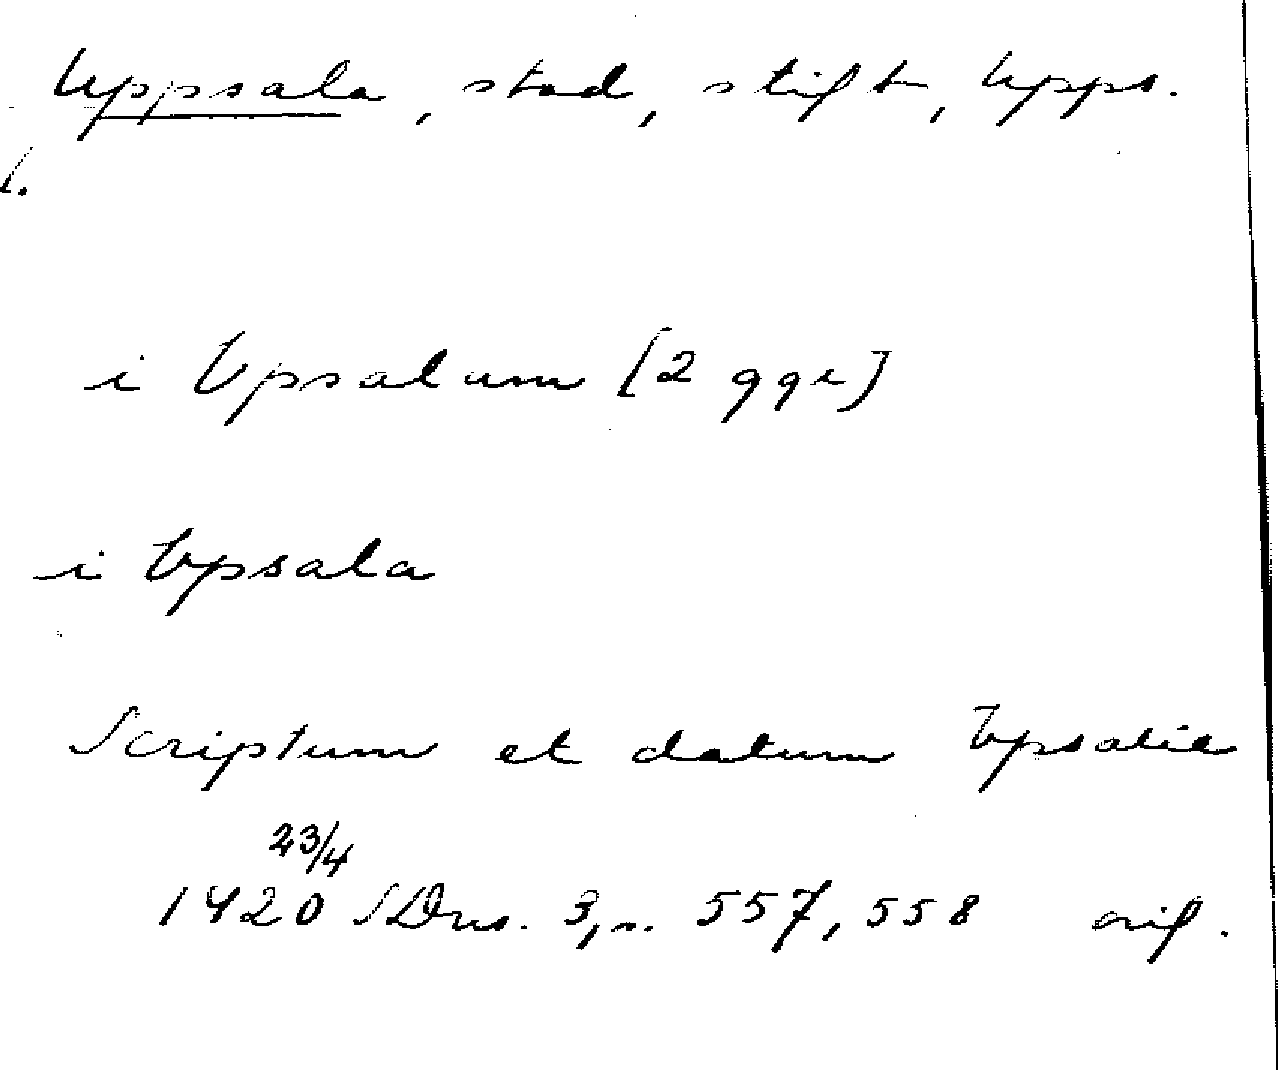 Uppsala, stad, stift, Upps.
l.
i Vpsalum [2 ggr]
i Vpsala
Scriptum et datum Vpsalie
23/4
1420 SDns. 3, s. 557, 558 orig.